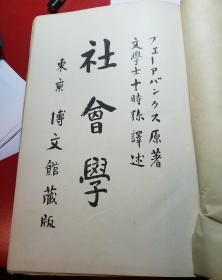 フエーアバンクス原著
文學士十時弥譯述
社會學
東京 博文館藏版